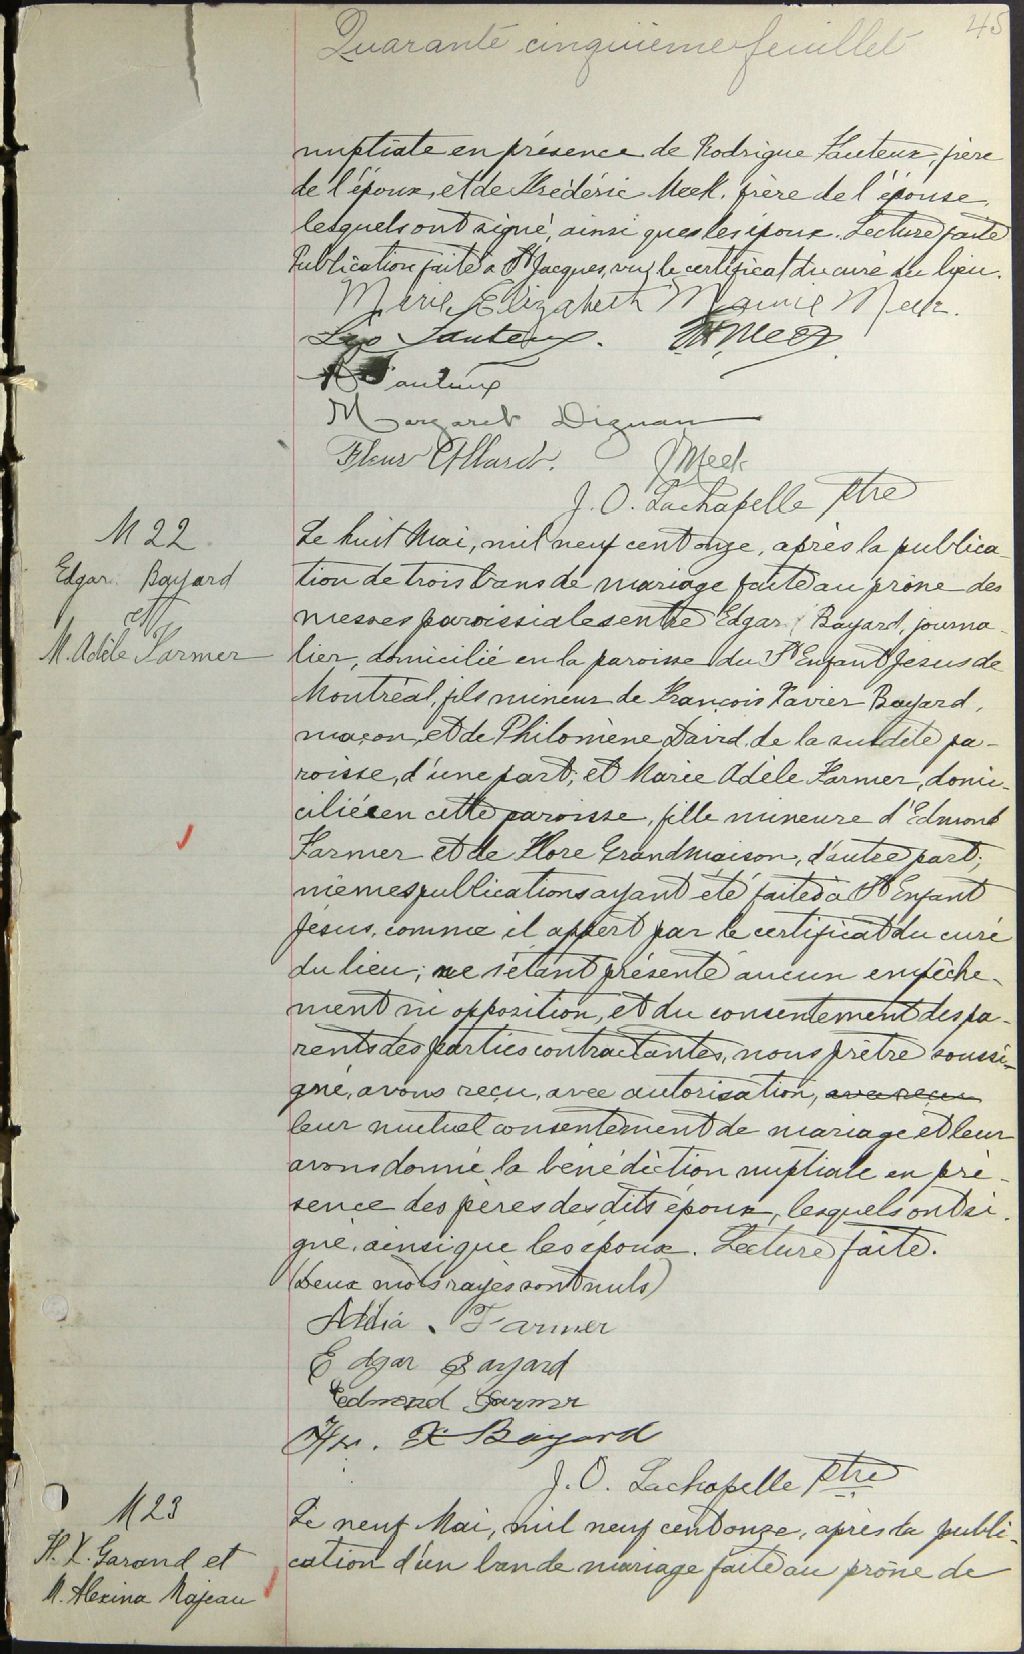 45
Quarante cinquième feuillet
nuptiale en présence de Rodrigue Fauteux, frère
de l'époux, et de Frédéric Meek, frère de l'épouse,
lesquels ont signé, ainsi que les époux. Lecture faite
Publication faite à St Jacques, vu le certificat du curé du lieu.
Marie Elizabeth Mamie Meek.
Léo Fauteux. Meek
R Fauteux
Margaret Dignan
Fleur Allard. J Meek
J. O. Lachapelle ptre
M 22
Edgar Bayard
et
M. Adèle Farmer
Le huit Mai, mil neuf cent onze, après la publica-
tion de trois bans de mariage faite au prône des
messes paroissiales entre Edgar Bayard, journa-
lier, domicilié en la paroisse du St Enfant Jesus de
Montréal, fils mineur de François Xavier Bayard,
maçon, et de Philomène David, de la susdite pa-
roisse, d'une part; et Marie Adèle Farmer, domi-
ciliée en cette paroisse, fille mineure d'Edmond
Farmer et de Flore Grandmaison, d'autre part;
mêmes publications ayant été faites à St Enfant
Jésus, comme il appert par le certificat du curé
du lieu; ne s'étant présenté aucun empêche-
ment ni opposition, et du consentement des pa-
rents des parties contractantes, nous prêtre soussi-
gné, avons reçu, avec autorisation,
leur mutuel consentement de mariage et leur
avons donné la bénédiction nuptiale en pré-
sence des pères des dits époux, lesquels ont si-
gné, ainsi que les époux. Lecture faite.
(Deux mots rayés sont nuls)
Farmer
Edgar Bayard
Edmond Farmer
Frs. X Bayard
J. O. Lachapelle ptre
M 23
F. X. Garand et
M. Alexina Majeau
Le neuf Mai, mil neuf cent onze, après la publi-
cation d'un ban de mariage faite au prône de